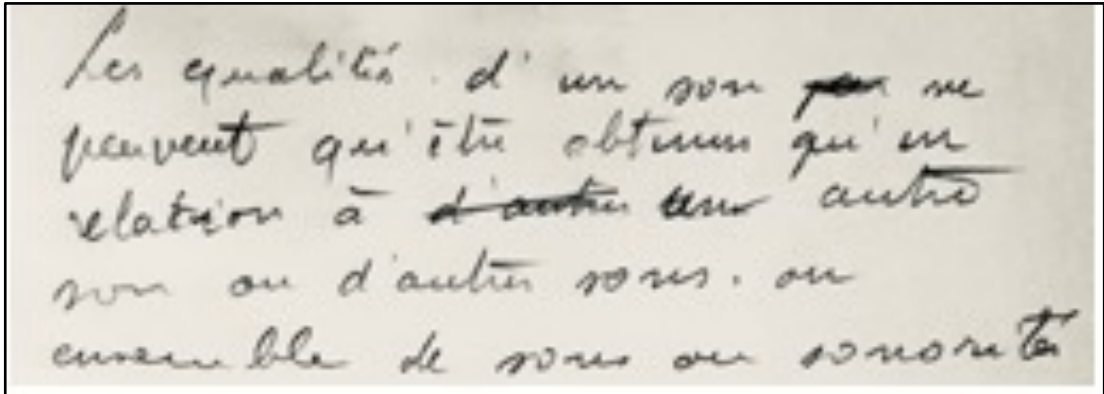 Les qualités d'un son ne
peuvent qu'être obtenues qu'en
relation à un autre
son ou d'autres sons. ou
ensemble de sons ou sonorités